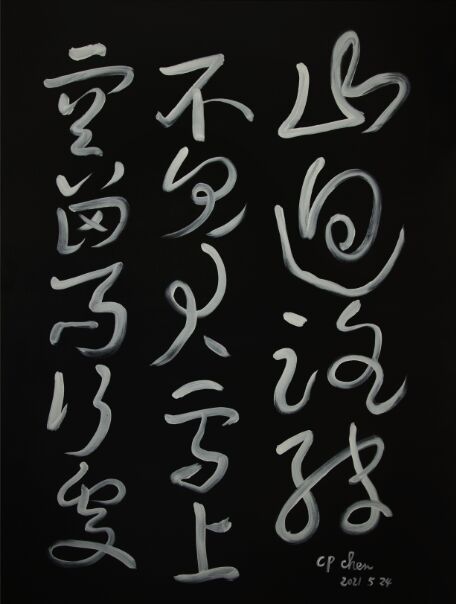 山迴路轉
不見君雪上
空留馬行處
CP chen
2021 5 24